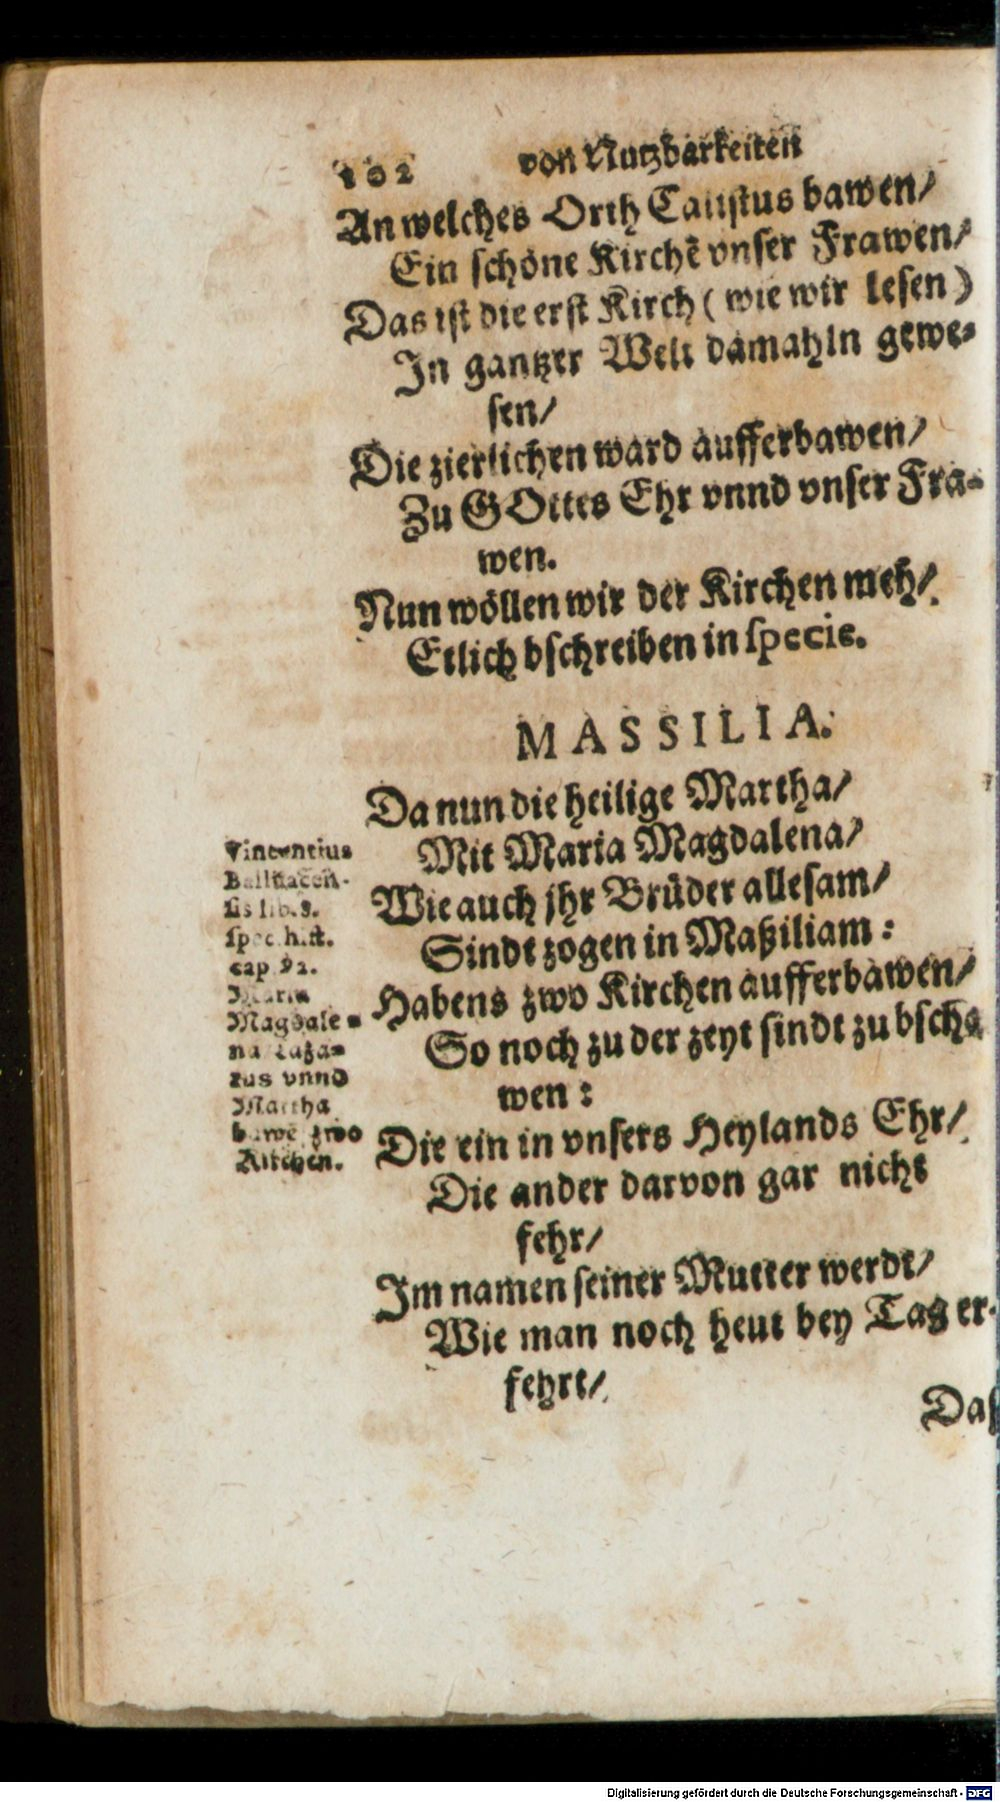 102 von Nutzbarkeiten
An welches Orth Calistus bawen/
Ein schöne Kirchē vnser Frawen/
Das ist die erst Kirch (wie wir lesen)
In gantzer Welt damahln gewe-
sen/
Die zierlichen ward aufferbawen/
Zu GOttes Ehr vnnd vnser Fra-
wen.
Nun wöllen wir der Kirchen meh/
Etlich bschreiben in specie.
MASSILIA.
Da nun die heilige Martha/
Mit Maria Magdalena/
Wie auch jhr Brüder allesam/
Sindt zogen in Maßiliam:
Habens zwo Kirchen aufferbawen/
So noch zu der zeyt sindt zu bscha
wen:
Die ein in vnsers Heylands Ehr/
Die ander darvon gar nicht
fehr/
Im namen seiner Mutter werdt/
Wie man noch heut bey Tag er-
fehrt/
Daß
Vincentius
Balluacen-
sis lib. 9.
spec. hist.
cap 92.
Maria
Magdale-
na Laza-
rus vnnd
Martha
bawē zwo
Kirchen.
Digitalisierung gefördert durch die Deutsche Forschungsgemeinschaft - DFG